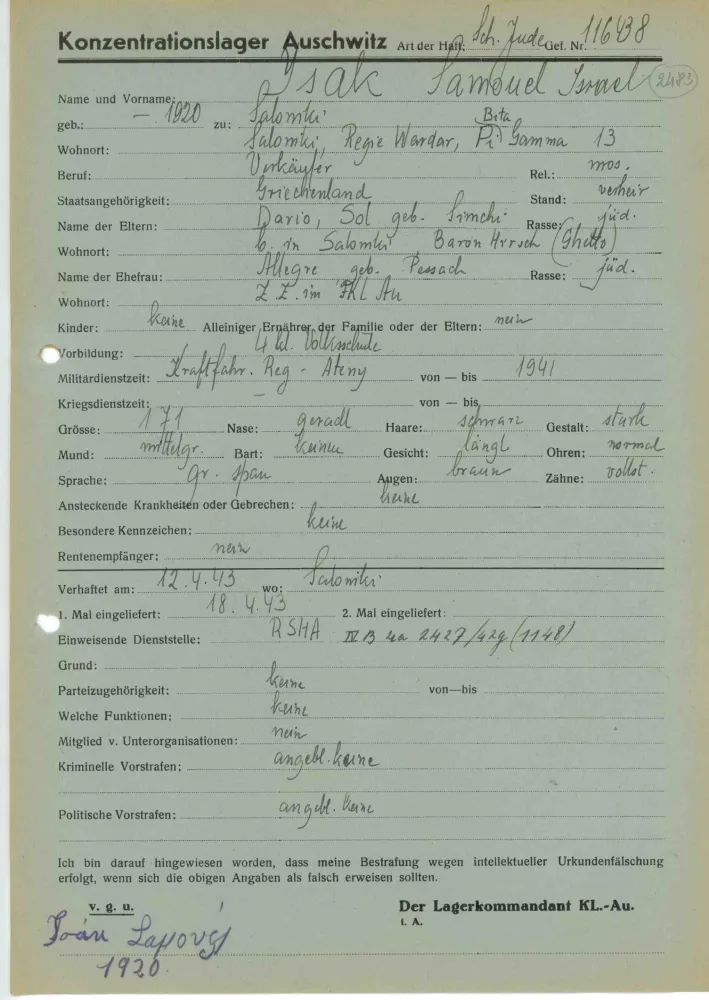 Konzentrationslager Auschwitz Art der Haft: Sch. Jude Gef. Nr. 116438
Name und Vorname: Isak Samouel Israel 2483
geb.: — 1920 zu: Saloniki
Bita
Wohnort: Saloniki, Regie Wardar, Pi Gamma 13
Beruf: Verkäufer Rel.: mos.
Staatsangehörigkeit: Griechenland Stand: verheir
Name der Eltern: Dario, Sol geb. Simchi Rasse: jüd.
Wohnort: b. in Saloniki Baron Hirsch (Ghetto)
Name der Ehefrau: Allegre geb. Pessach Rasse: jüd.
Wohnort: Z. Z. im FKL Au
Kinder: keine Alleiniger Ernährer der Familie oder der Eltern: nein
Vorbildung: 4 kl. Volksschule
Militärdienstzeit: Kraftfahr. Reg - Ateny von — bis 1941
Kriegsdienstzeit: — von — bis
Grösse: 171 Nase: geradl Haare: schwarz Gestalt: stark
Mund: mittelgr. Bart: keinen Gesicht: längl Ohren: normal
Sprache: gr. span Augen: braun Zähne: vollst.
Ansteckende Krankheiten oder Gebrechen: keine
Besondere Kennzeichen: keine
Rentenempfänger: nein
Verhaftet am: 12.4.43 wo: Saloniki
1. Mal eingeliefert: 18.4.43 2. Mal eingeliefert:
Einweisende Dienststelle: RSHA IV B 4a 2427/42g (1148)
Grund:
Parteizugehörigkeit: keine von—bis
Welche Funktionen: keine
Mitglied v. Unterorganisationen: nein
Kriminelle Vorstrafen: angebl. keine
Politische Vorstrafen: angebl. keine
Ich bin darauf hingewiesen worden, dass meine Bestrafung wegen intellektueller Urkundenfälschung
erfolgt, wenn sich die obigen Angaben als falsch erweisen sollten.
v. g. u. Der Lagerkommandant KL.-Au.
i. A.
1920